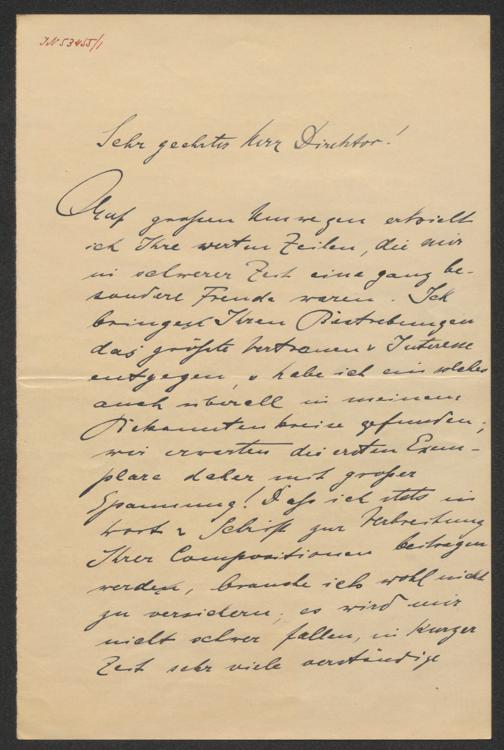 JN 53455/1
Sehr geehrter Herr Direktor!
Auf großen Umwegen erhielt
ich Ihre werten Zeilen, die mir
in schwerer Zeit eine ganz be-
sondere Freude waren. Ich
bringe Ihren Bestrebungen
das größte Vertrauen u Interesse
entgegen, u habe ich ein solches
auch überall in meinem
Bekanntenkreise gefunden;
wir erwarten die ersten Exem-
plare daher mit großer
Spannung! Daß ich stets in
Wort u Schrift zur Verbreitung
Ihrer Compositionen beitragen
werden, brauche ich wohl nicht
zu versichern; es wird mir
nicht schwer fallen, in kurzer
Zeit sehr viele verständige